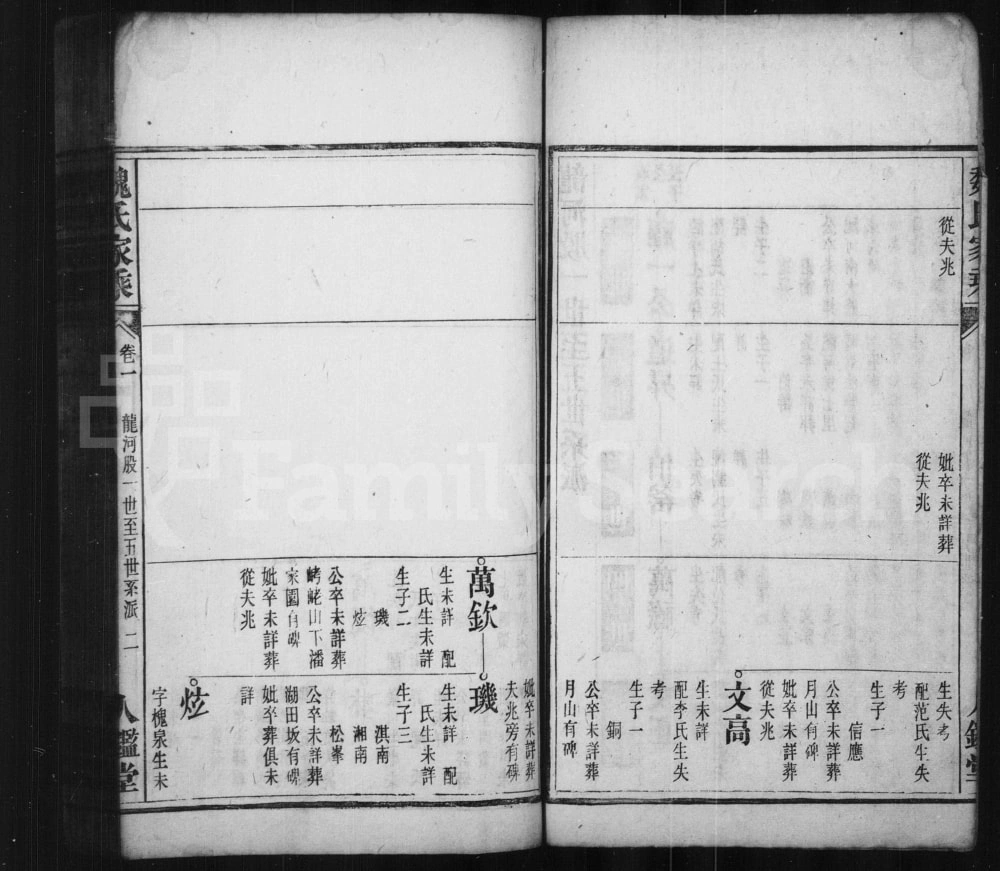 魏氏家乘
八鑑堂
從夫兆
妣卒未詳葬
從夫兆
生失考
配范氏生失
考
生子一
信應
公卒未詳葬
月山有碑
妣卒未詳葬
從夫兆
文高
生未詳
配李氏生失
考
生子一
銅
公卒未詳葬
月山有碑
妣卒未詳葬
夫兆旁有碑
萬欽
生未詳 配
氏生未詳
生子二
璣
炫
公卒未詳葬
山下潘
家園有碑
妣卒未詳葬
從夫兆
璣
生未詳 配
氏生未詳
生子三
淇南
湘南
松峯
公卒未詳葬
湖田坂有碑
妣卒葬俱未
詳
炫
字槐泉生未
魏氏家乘
卷一
龍河股一世至五世系派 二
八鑑堂
FamilySearch